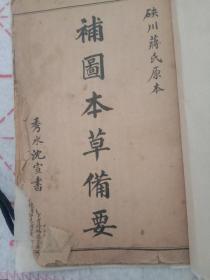 硤川蔣氏原本
補圖本草備要
秀水沈宣書